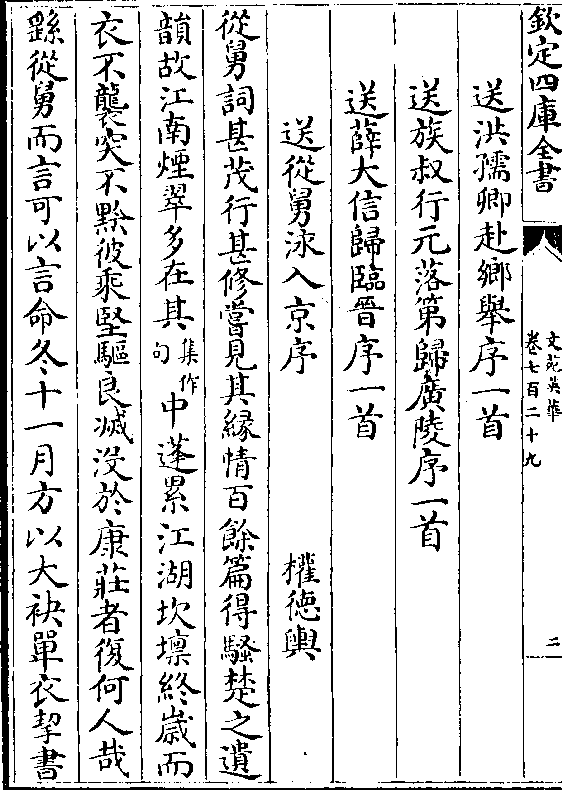 欽定四庫全書
文苑英華
卷七百二十九
二
送洪孺卿赴鄉舉序一首
送族叔行元落第歸廣陵序一首
送薛大信歸臨晉序一首
送從舅泳入京序 權德輿
從舅詞甚茂行甚修嘗見其緣情百餘篇得騷楚之遺
韻故江南煙翠多在其集作句中蓬累江湖坎壈終歲而
衣不襲突不黔彼乘堅驅良滅沒於康莊者復何人哉
繇從舅而言可以言命冬十一月方以大袂單衣挈書